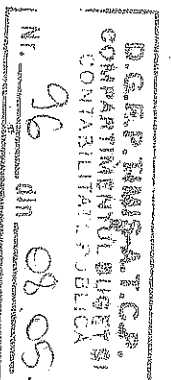 D.G.F.P. TIMIȘ-A.T.C.P.
COMPARTIMENTUL BUGET ȘI
CONTABILITATE PUBLICĂ
Nr. 96 din 08.05